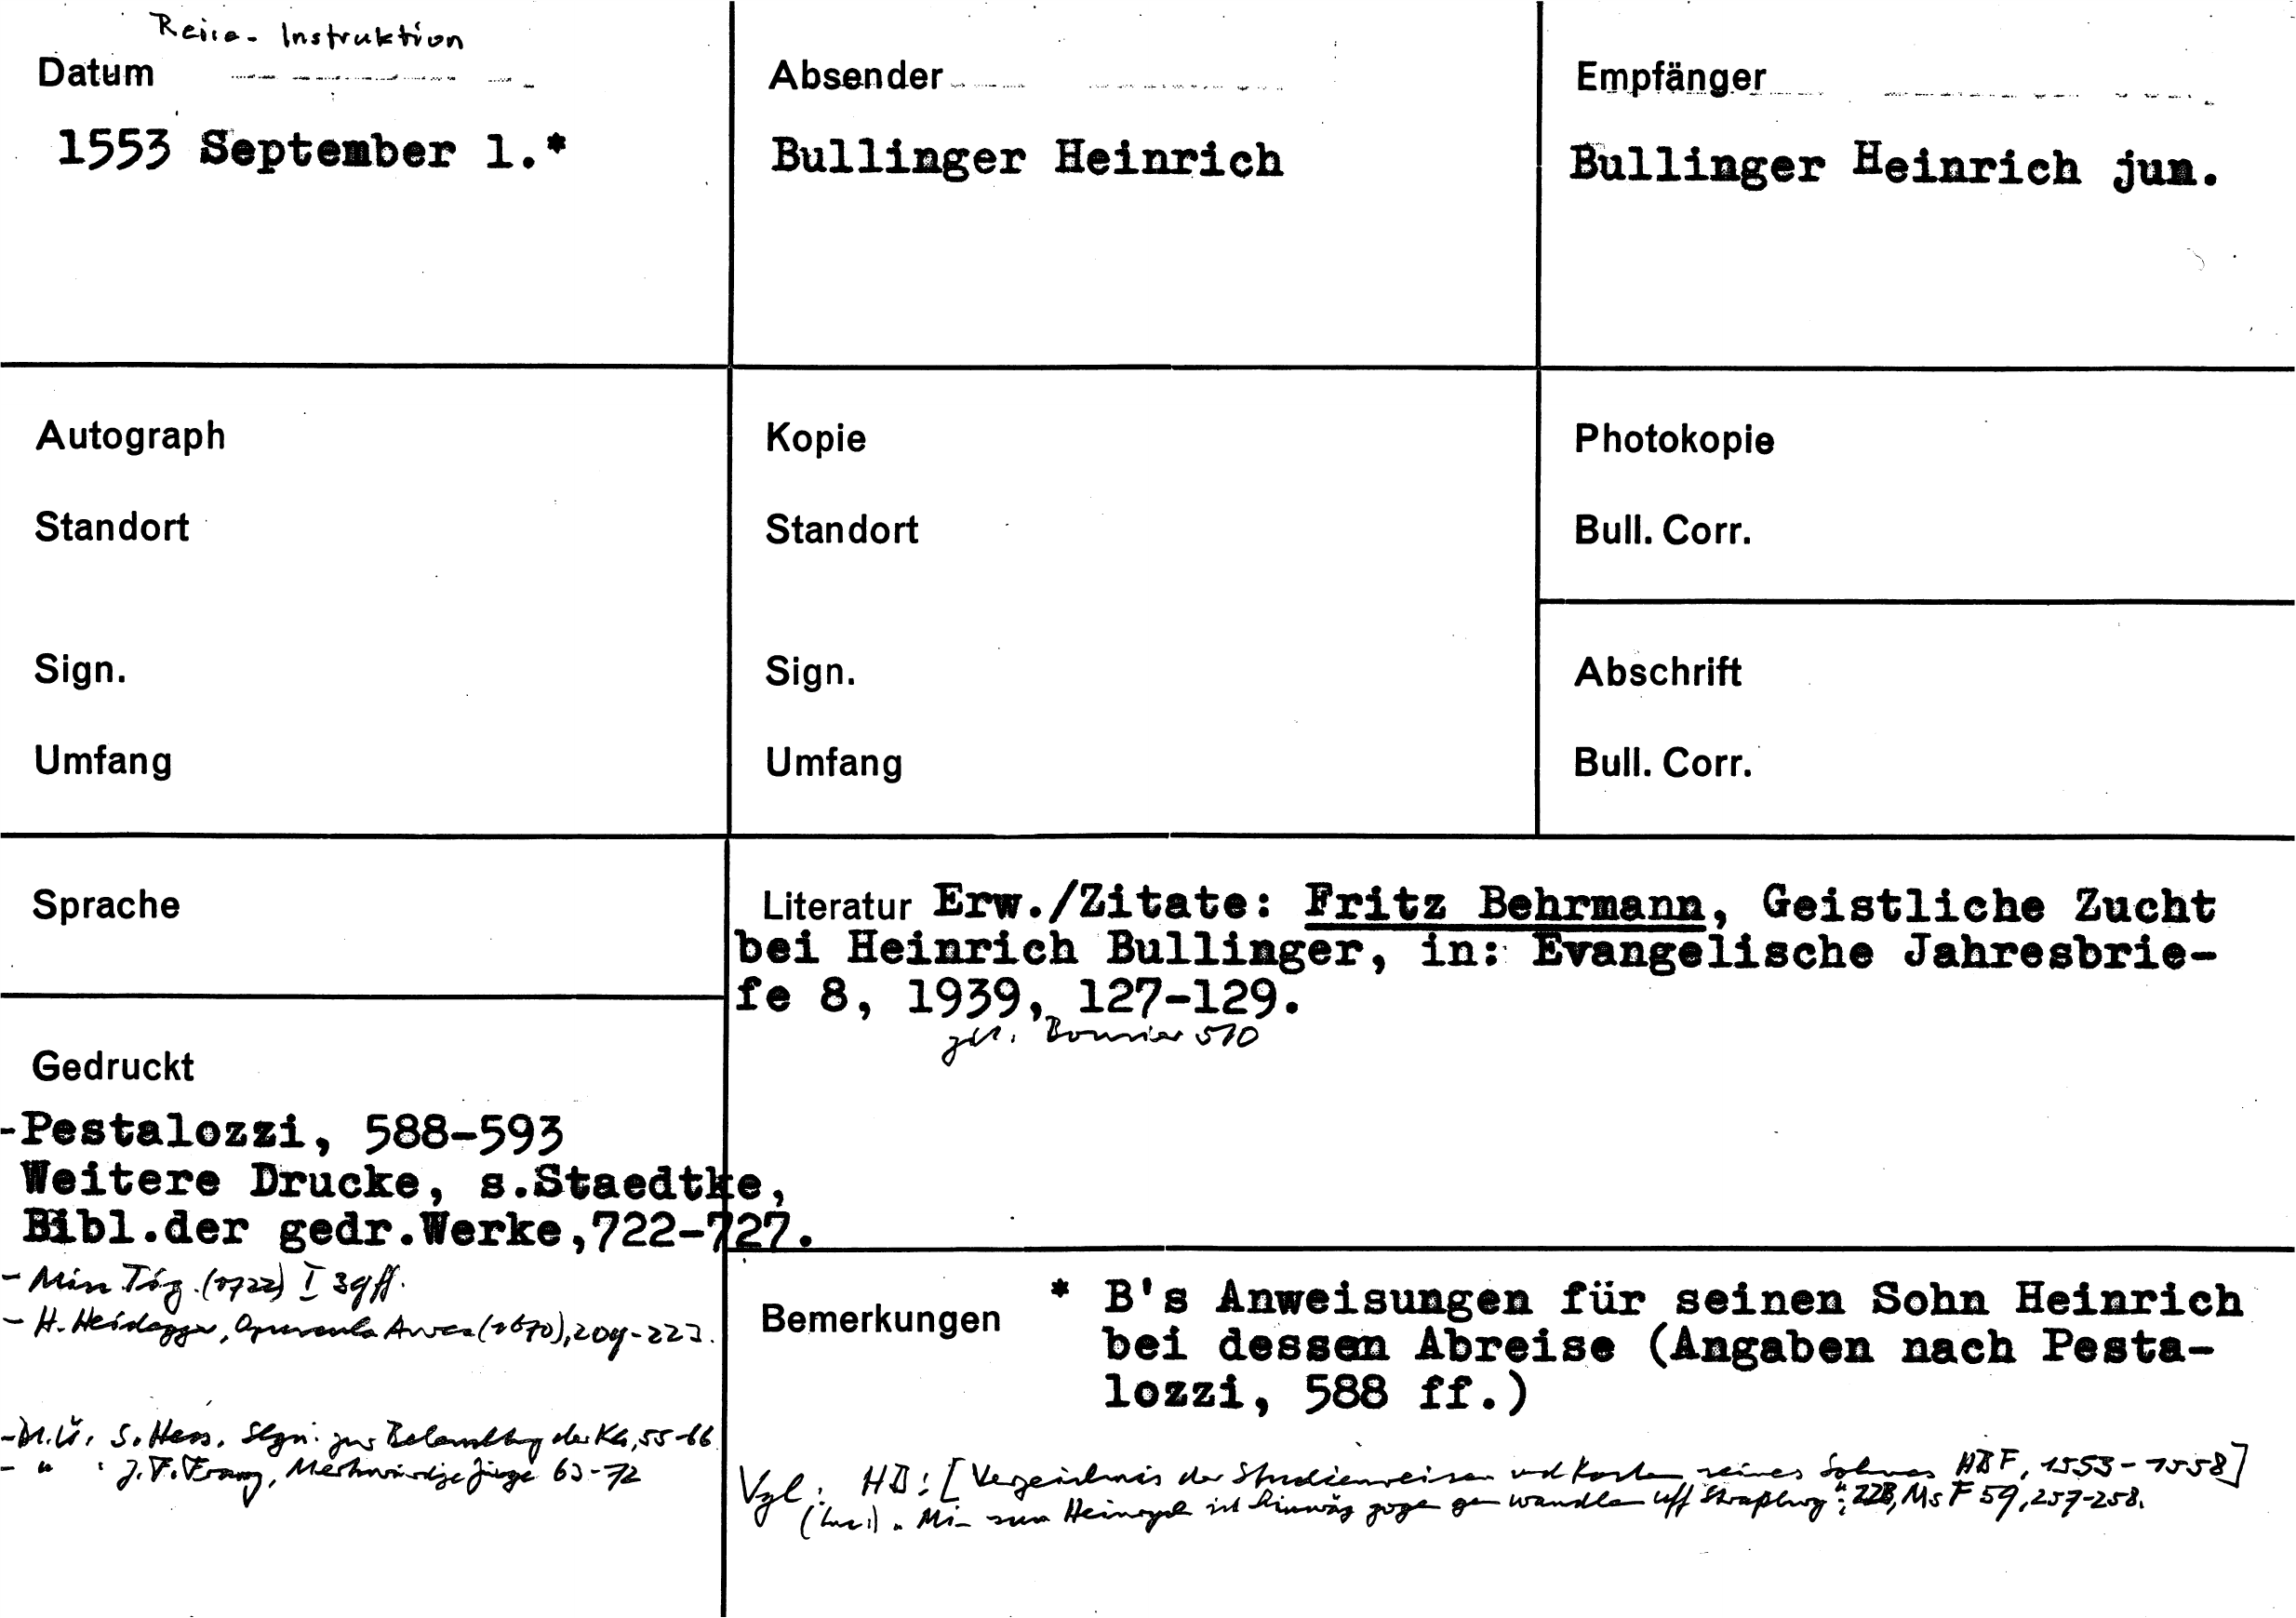 Reise-Instruktion
Datum
1553 September 1.*
Absender
Bullinger Heinrich
Empfänger
Bullinger Heinrich jun.
Autograph
Standort
Sign.
Umfang
Kopie
Standort
Sign.
Umfang
Photokopie
Bull. Corr.
Abschrift
Bull. Corr.
Sprache
Gedruckt
-Pestalozzi, 588-593
Weitere Drucke, s.Staedtke,
Bibl.der gedr.Werke,722-727.
- Misc. Tig. (1722) I 39ff.
- H. Heidegger, Opuscula Aurea (1670), 209-223.
- S. Hess, Slgn. zur Beleuchtung der KG, 55-66
- " : J. F. Franz, Merkwürdige Züge 63-72
Literatur Erw./Zitate: Fritz Behrmann, Geistliche Zucht
bei Heinrich Bullinger, in: Evangelische Jahresbrie-
fe 8, 1939, 127-129.
510
Bemerkungen * B's Anweisungen für seinen Sohn Heinrich
bei dessen Abreise (Angaben nach Pesta-
lozzi, 588 ff.)
Vgl. HB: [Verzeichnis der Studienreisen und Kosten seines Sohnes HBF, 1553-1558]
sun ist hinwäg uff Straßburg", ZZB, Ms F 59, 257-258.